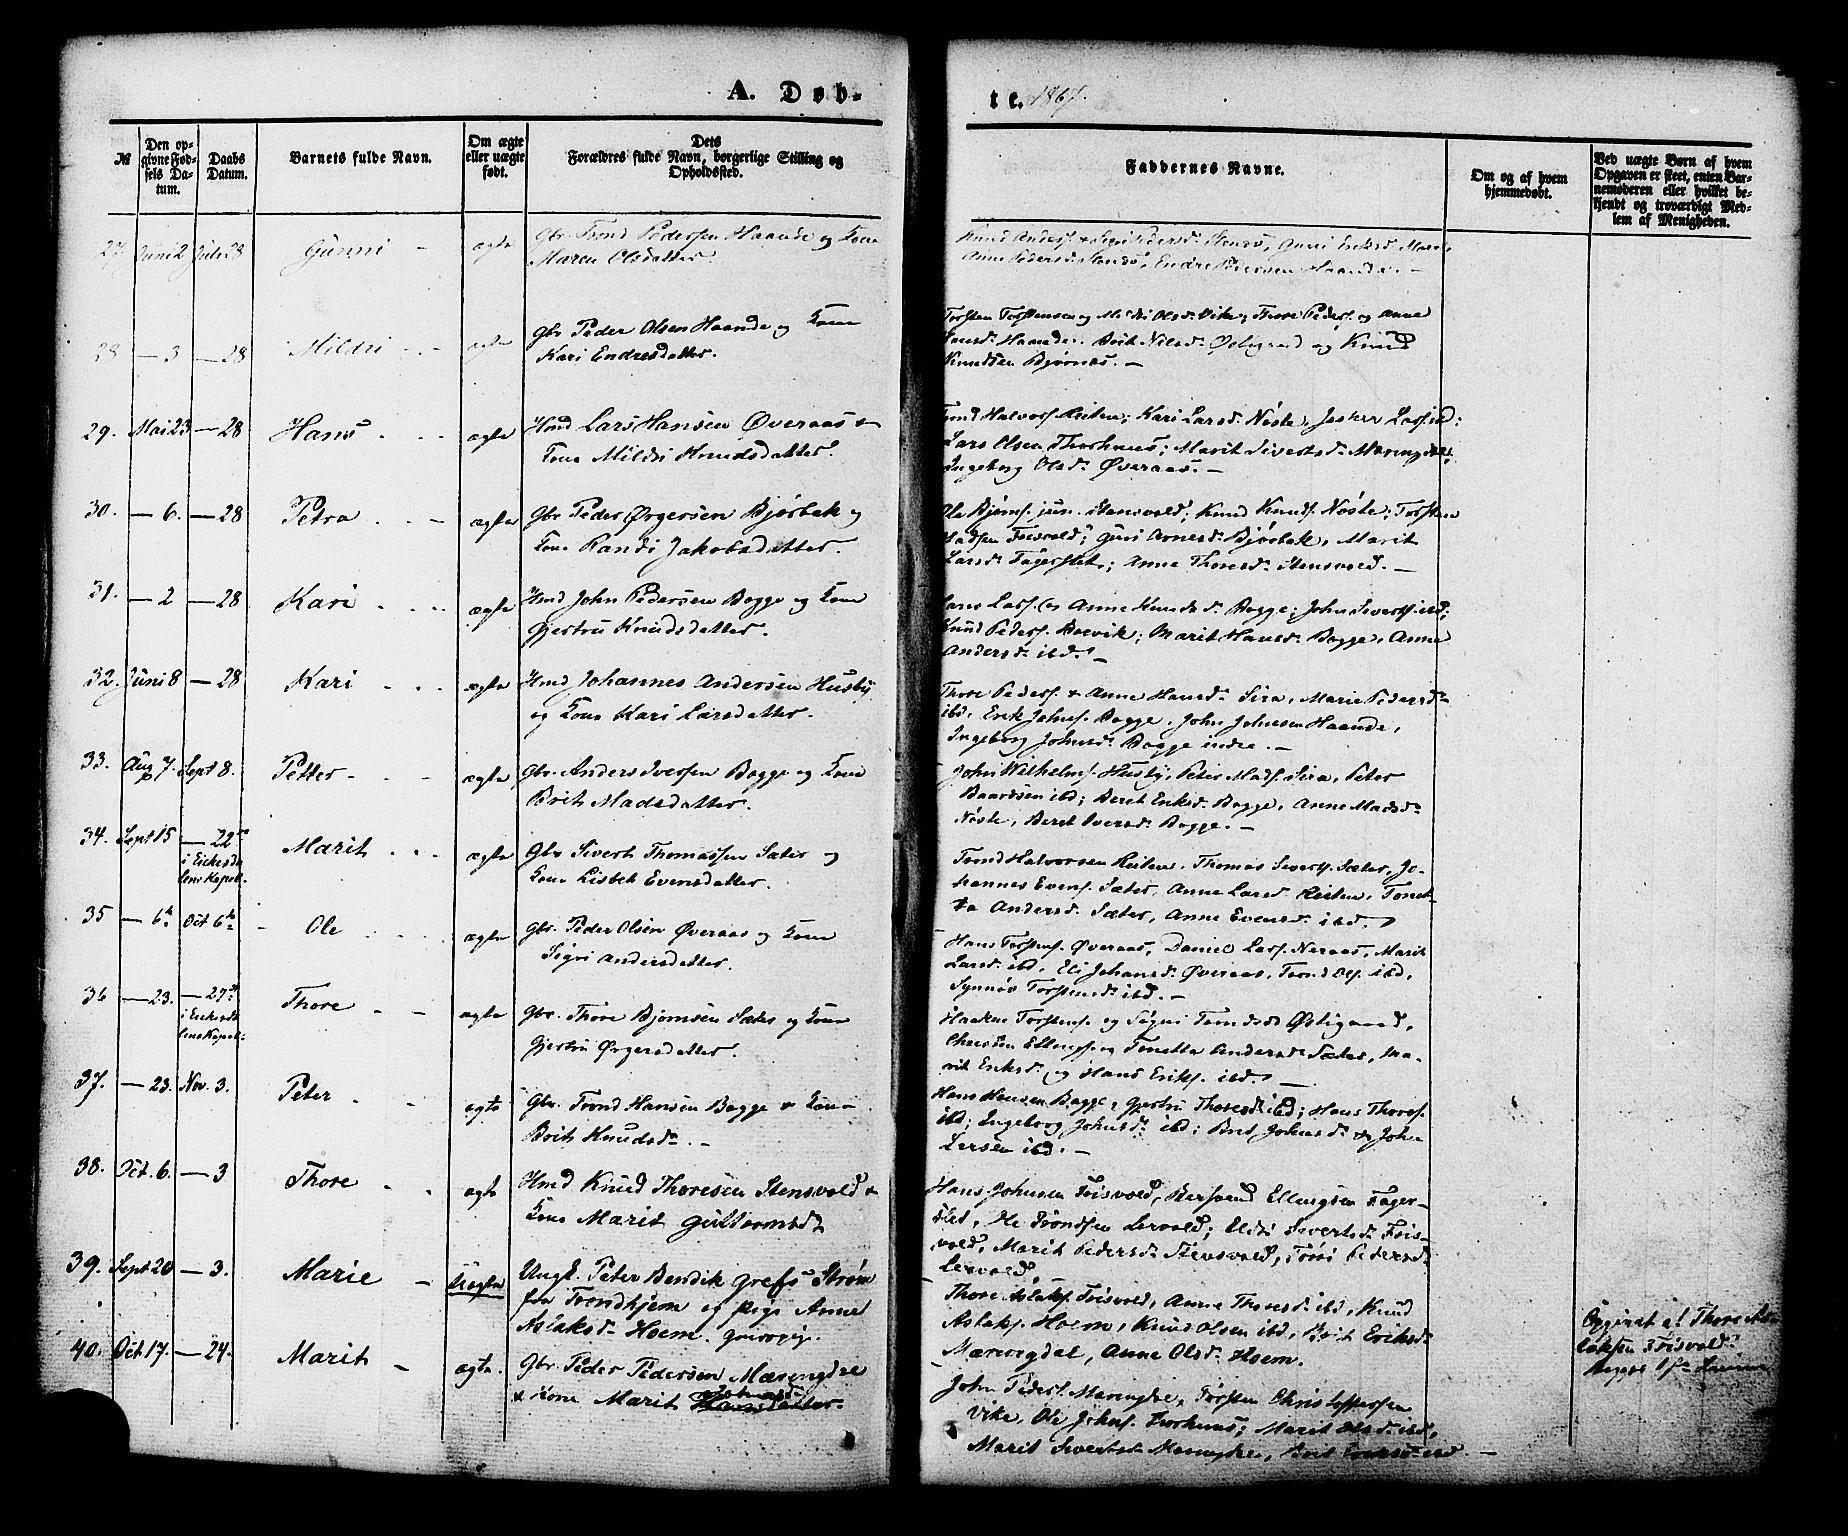 A. Døb-
te. 1867.
№
Den op-
givne Fød-
sels Da-
tum.
Daabs
Datum.
Barnets fulde Navn.
Om ægte
eller uægte
født.
Dets
Forældres fulde Navn, borgerlige Stilling og
Opholdssted.
Faddernes Navne.
Om og af hvem
hjemmedøbt.
Ved uægte Børn af hvem
Opgaven er skeet, enten Bar-
nemoderen eller hvilket be-
kjendt og troværdigt Med-
lem af Menigheden.
27. Juni 2 Juli 28 Gunni - ægte Gbr. Trond Pedersen Haande og Kone
Maren Olsdatter
Knud Anders. & Sigri Pedersd. Stensø, Guri Eriksd.
Anne Pedersd. Stensø, Endre Pedersen Haande. -
28 - 3 - 28 Mildri - - ægte Gbr Peder Olsen Haande og Kone
Kari Endresdatter.
Torsten Torstensen og Mildri Olsd. Vike, Thore Peders. og Anne
Larsd. Haande. Brit Nilsd. Østigaard og Knud
Knudsen Bjørnæs. -
29. Mai 23 - 28 Hans ægte Hmd Lars Hansen Øveraas &
Kone Mildri Knudsdatter.
Trond Halvors. Reiten; Kari Larsd. Nøste, Lars. ibd:
Lars Olsen Thorhuus; Marit Sivertsd. Mæringdal;
Ingeborg Olsd. Øveraas. -
30. - 6. - 28 Petra - ægte Gbr Peder Ørgersen Bjørbæk og
Kone Randi Jakobsdatter.
Ole Bjørns. jun. Stensvold; Knud Knuds. Nøste; Torsten
Madsen Frisvold; Guri Arnesd. Bjørbæk, Marit
Larsd. Fagerslet; Anne Thoresd. Stensvold. -
31. - 2 - 28 Kari ægte Hmd John Pedersen Bogge og Kone
Gjertru Knudsdatter.
Lars Lars. & Anne Knudsd. Bogge; John Siverts. ibd;
Knud Peders. Boevik; Marit Hansd. Bogge, Anne
Andersd. ibd. -
32. Juni 8 - 28 Kari ægte Hmd Johannes Andersen Husby
og Kone Kari Larsdatter.
Thore Peders. & Anne Hansd. Sira, Marie Pedersd.
ibd, Erik Johns. Bogge, John Johnsen Haande,
Ingeborg Johnsd. Bogge indre. -
33. Aug 7. Sept 8. Petter - - ægte Gbr. Anders Iversen Bogge og Kone
Brit Madsdatter.
John Wilhelms. Husby, Peter Mads. Sira, Peter
Baardsen ibd; Beret Eriksd. Bogge, Anne Madsd.
Nøste, Beret Iversd. Bogge. -
34. Sept 15 - 22de Marit ægte Gbr Sivert Thomassen Sæter og
i Eikesda
lens Kapel.
Kone Lisbet Evensdatter.
Trond Halvorsen Reiten. Thomas Siverts. Sæter, Jo-
hannes Evens. Sæter, Anne Larsd. Reiten, Tonet-
ta Andersd. Sæter, Anne Evensd. ibd.
35 - 6te Oct 6te - Ole ægte Gbr. Peder Olsen Øveraas og Kone
Sigri Andersdatter.
Hans Torstens. Øveraas, Daniel Lars. Neraas, Marit
Larsd. ibd, Eli Johansd. Øveraas, Trond Ols. ibd,
Synnøv Torstensd. ibd. -
36 - 23. - 27de Thore - - ægte Gbr. Thore Bjørnsen Sæter og Kone
i Eikesda
lens Kapel-
Gjertru Ørgersdatter.
Haaken Torstens. og Sigri Trondsd. Østigaard,
Christen Ellings. og Tonetta Andersd. Sæter, Ma-
rit Eriksd. og Hans Eriks. ibd. -
37. - 23. Nov. 3. Peter - ægte Gbr. Trond Hansen Bogge & Kone
Brit Knudsd. -
Hans Hansen Bogge, Gjertru Thoresd. ibd; Hans Thores.
ibd; Ingeborg Johnsd. ibd; Brit Johnsd. & John
Larsen ibd. -
38. Oct. 6. - 3 Thore ægte Hmd Knud Thoresen Stensvold &
Kone Marit Guttormsd.
Hans Johnsen Frisvold, Bersvend Ellingsen Fager-
slet, Ole Trondsen Lervold; Eldri Sivertsd. Fris-
vold, Marit Pedersd. Stensvold, Pedersd.
Lervold
39. Sept 20 - 3. Marie - Uægte Ungk. Peter Bendik Grefs Strøm
fra Trondhjem og pige Anne
Aslaksd. Hoem.
Thore Aslaks. Frisvold, Anne Thoresd. ibd, Knud
Aslaks. Hoem, Knud Olsen ibd, Brit Eriksd.
Mæringdal, Anne Olsd. Hoem.
Opgivet af Thore As-
laksen Frisvold.
40. Oct. 17. - 24. Marit - ægte. Gbr. Peder Pedersen Mæringdal
& Kone Marit Hansdatter.
John Peders. Mæringdal, Torsten Christoffersen
Vike, Ole Johns. Thorhuus; Marit Olsd. ibd,
Marit Sivertsd. Mæringdal, Brit Eriksd. ibd. -